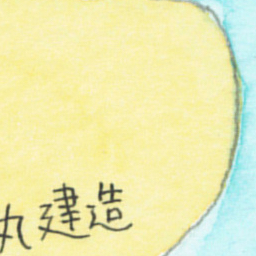 丸建造